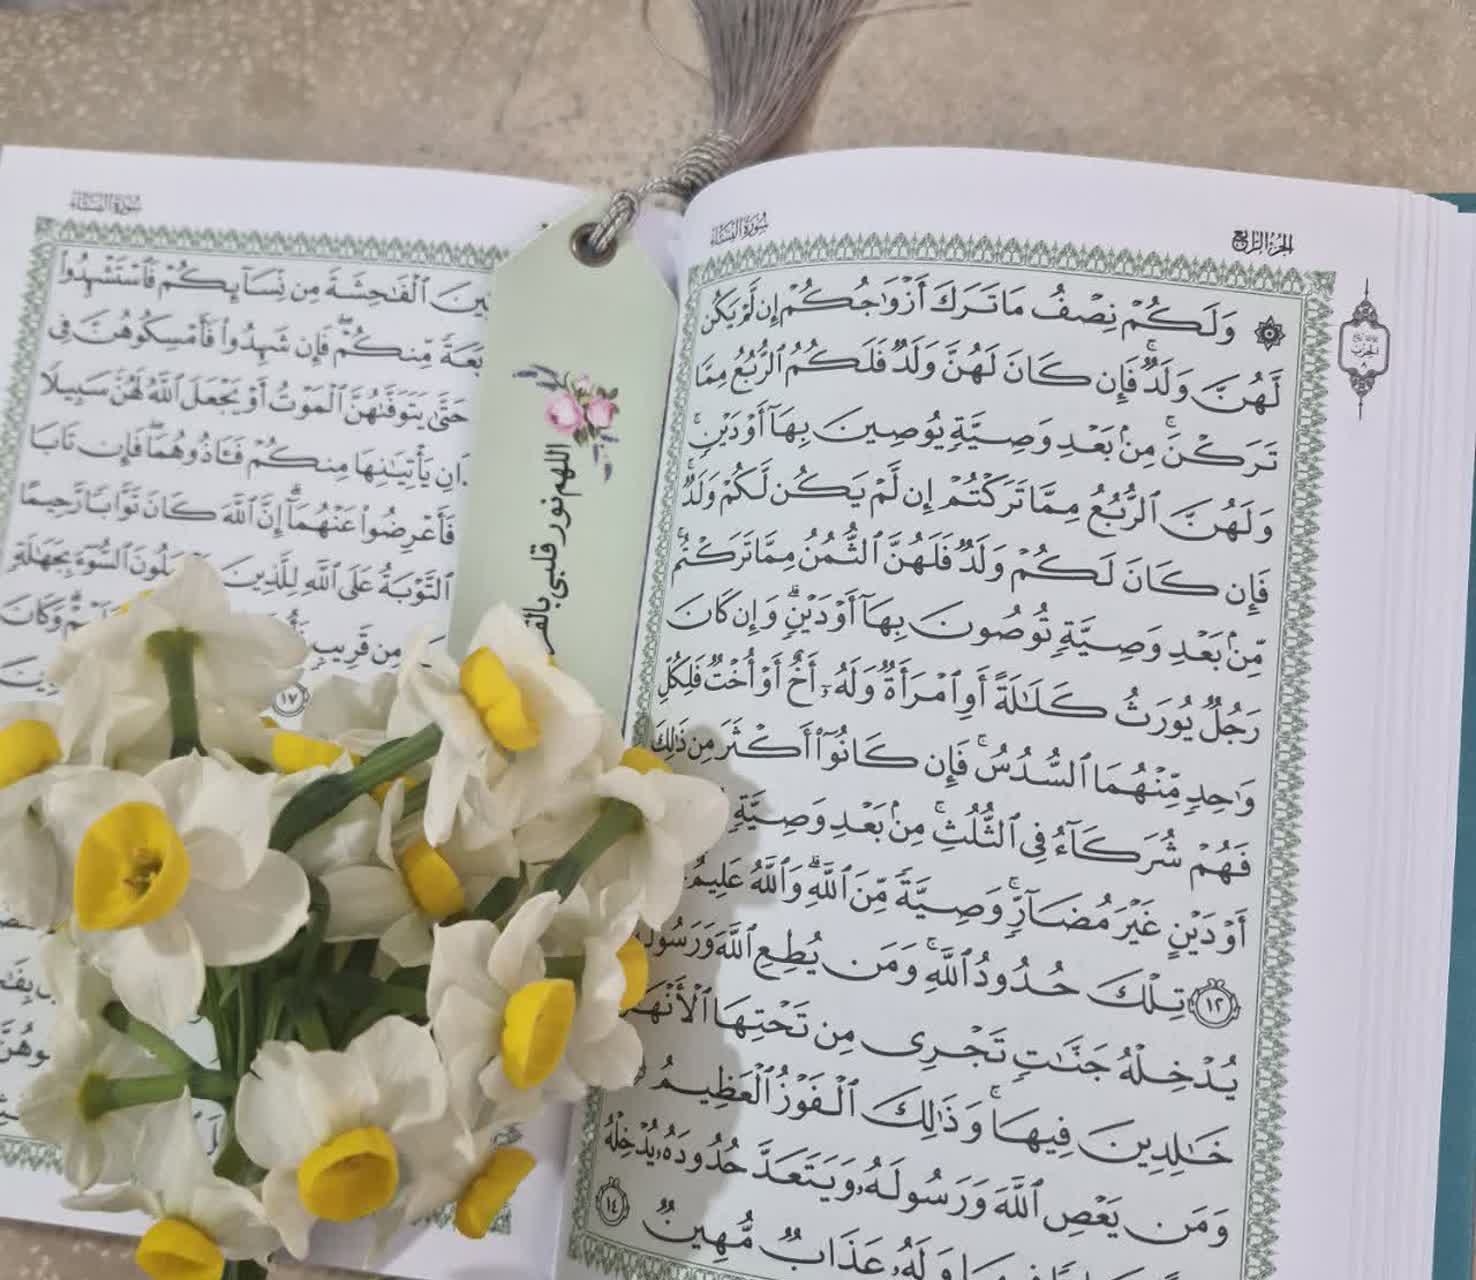 سُورَةُ النِّسَاءِ
الجُزْءُ الرَّابِعُ
وَلَكُمْ نِصْفُ مَا تَرَكَ أَزْوَٰجُكُمْ إِن لَّمْ يَكُن
لَّهُنَّ وَلَدٌ ۚ فَإِن كَانَ لَهُنَّ وَلَدٌ فَلَكُمُ ٱلرُّبُعُ مِمَّا
تَرَكْنَ ۚ مِنۢ بَعْدِ وَصِيَّةٍ يُوصِينَ بِهَآ أَوْ دَيْنٍ ۚ
وَلَهُنَّ ٱلرُّبُعُ مِمَّا تَرَكْتُمْ إِن لَّمْ يَكُن لَّكُمْ وَلَدٌ ۚ
فَإِن كَانَ لَكُمْ وَلَدٌ فَلَهُنَّ ٱلثُّمُنُ مِمَّا تَرَكْتُم ۚ
مِّنۢ بَعْدِ وَصِيَّةٍ تُوصُونَ بِهَآ أَوْ دَيْنٍ ۗ وَإِن كَانَ
رَجُلٌ يُورَثُ كَلَٰلَةً أَوِ ٱمْرَأَةٌ وَلَهُۥٓ أَخٌ أَوْ أُخْتٌ فَلِكُلِّ
وَٰحِدٍ مِّنْهُمَا ٱلسُّدُسُ ۚ فَإِن كَانُوٓا۟ أَكْثَرَ مِن ذَٰلِكَ
فَهُمْ شُرَكَآءُ فِى ٱلثُّلُثِ ۚ مِنۢ بَعْدِ وَصِيَّةٍ
أَوْ دَيْنٍ غَيْرَ مُضَآرٍّ ۚ وَصِيَّةً مِّنَ ٱللَّهِ ۗ وَٱللَّهُ عَلِيمٌ
١٢ تِلْكَ حُدُودُ ٱللَّهِ ۚ وَمَن يُطِعِ ٱللَّهَ وَرَسُولَهُ
يُدْخِلْهُ جَنَّٰتٍ تَجْرِى مِن تَحْتِهَا ٱلْأَنْهَٰرُ
خَٰلِدِينَ فِيهَا ۚ وَذَٰلِكَ ٱلْفَوْزُ ٱلْعَظِيمُ
وَمَن يَعْصِ ٱللَّهَ وَرَسُولَهُۥ وَيَتَعَدَّ حُدُودَهُۥ يُدْخِلْهُ
وَلَهُۥ عَذَابٌ مُّهِينٌ ١٤
الحزب
اللهم نور قلبي
سُورَةُ النِّسَاءِ
ٱلْفَٰحِشَةَ مِن نِّسَآئِكُمْ فَٱسْتَشْهِدُوا۟
مِّنكُمْ ۖ فَإِن شَهِدُوا۟ فَأَمْسِكُوهُنَّ فِى
حَتَّىٰ يَتَوَفَّىٰهُنَّ ٱلْمَوْتُ أَوْ يَجْعَلَ ٱللَّهُ لَهُنَّ سَبِيلًا
يَأْتِيَٰنِهَا مِنكُمْ فَـَٔاذُوهُمَا ۖ فَإِن تَابَا
فَأَعْرِضُوا۟ عَنْهُمَآ ۗ إِنَّ ٱللَّهَ كَانَ تَوَّابًا رَّحِيمًا
ٱلتَّوْبَةُ عَلَى ٱللَّهِ لِلَّذِينَ ٱلسُّوٓءَ بِجَهَٰلَةٍ
مِن قَرِيبٍ وَكَانَ
١٧